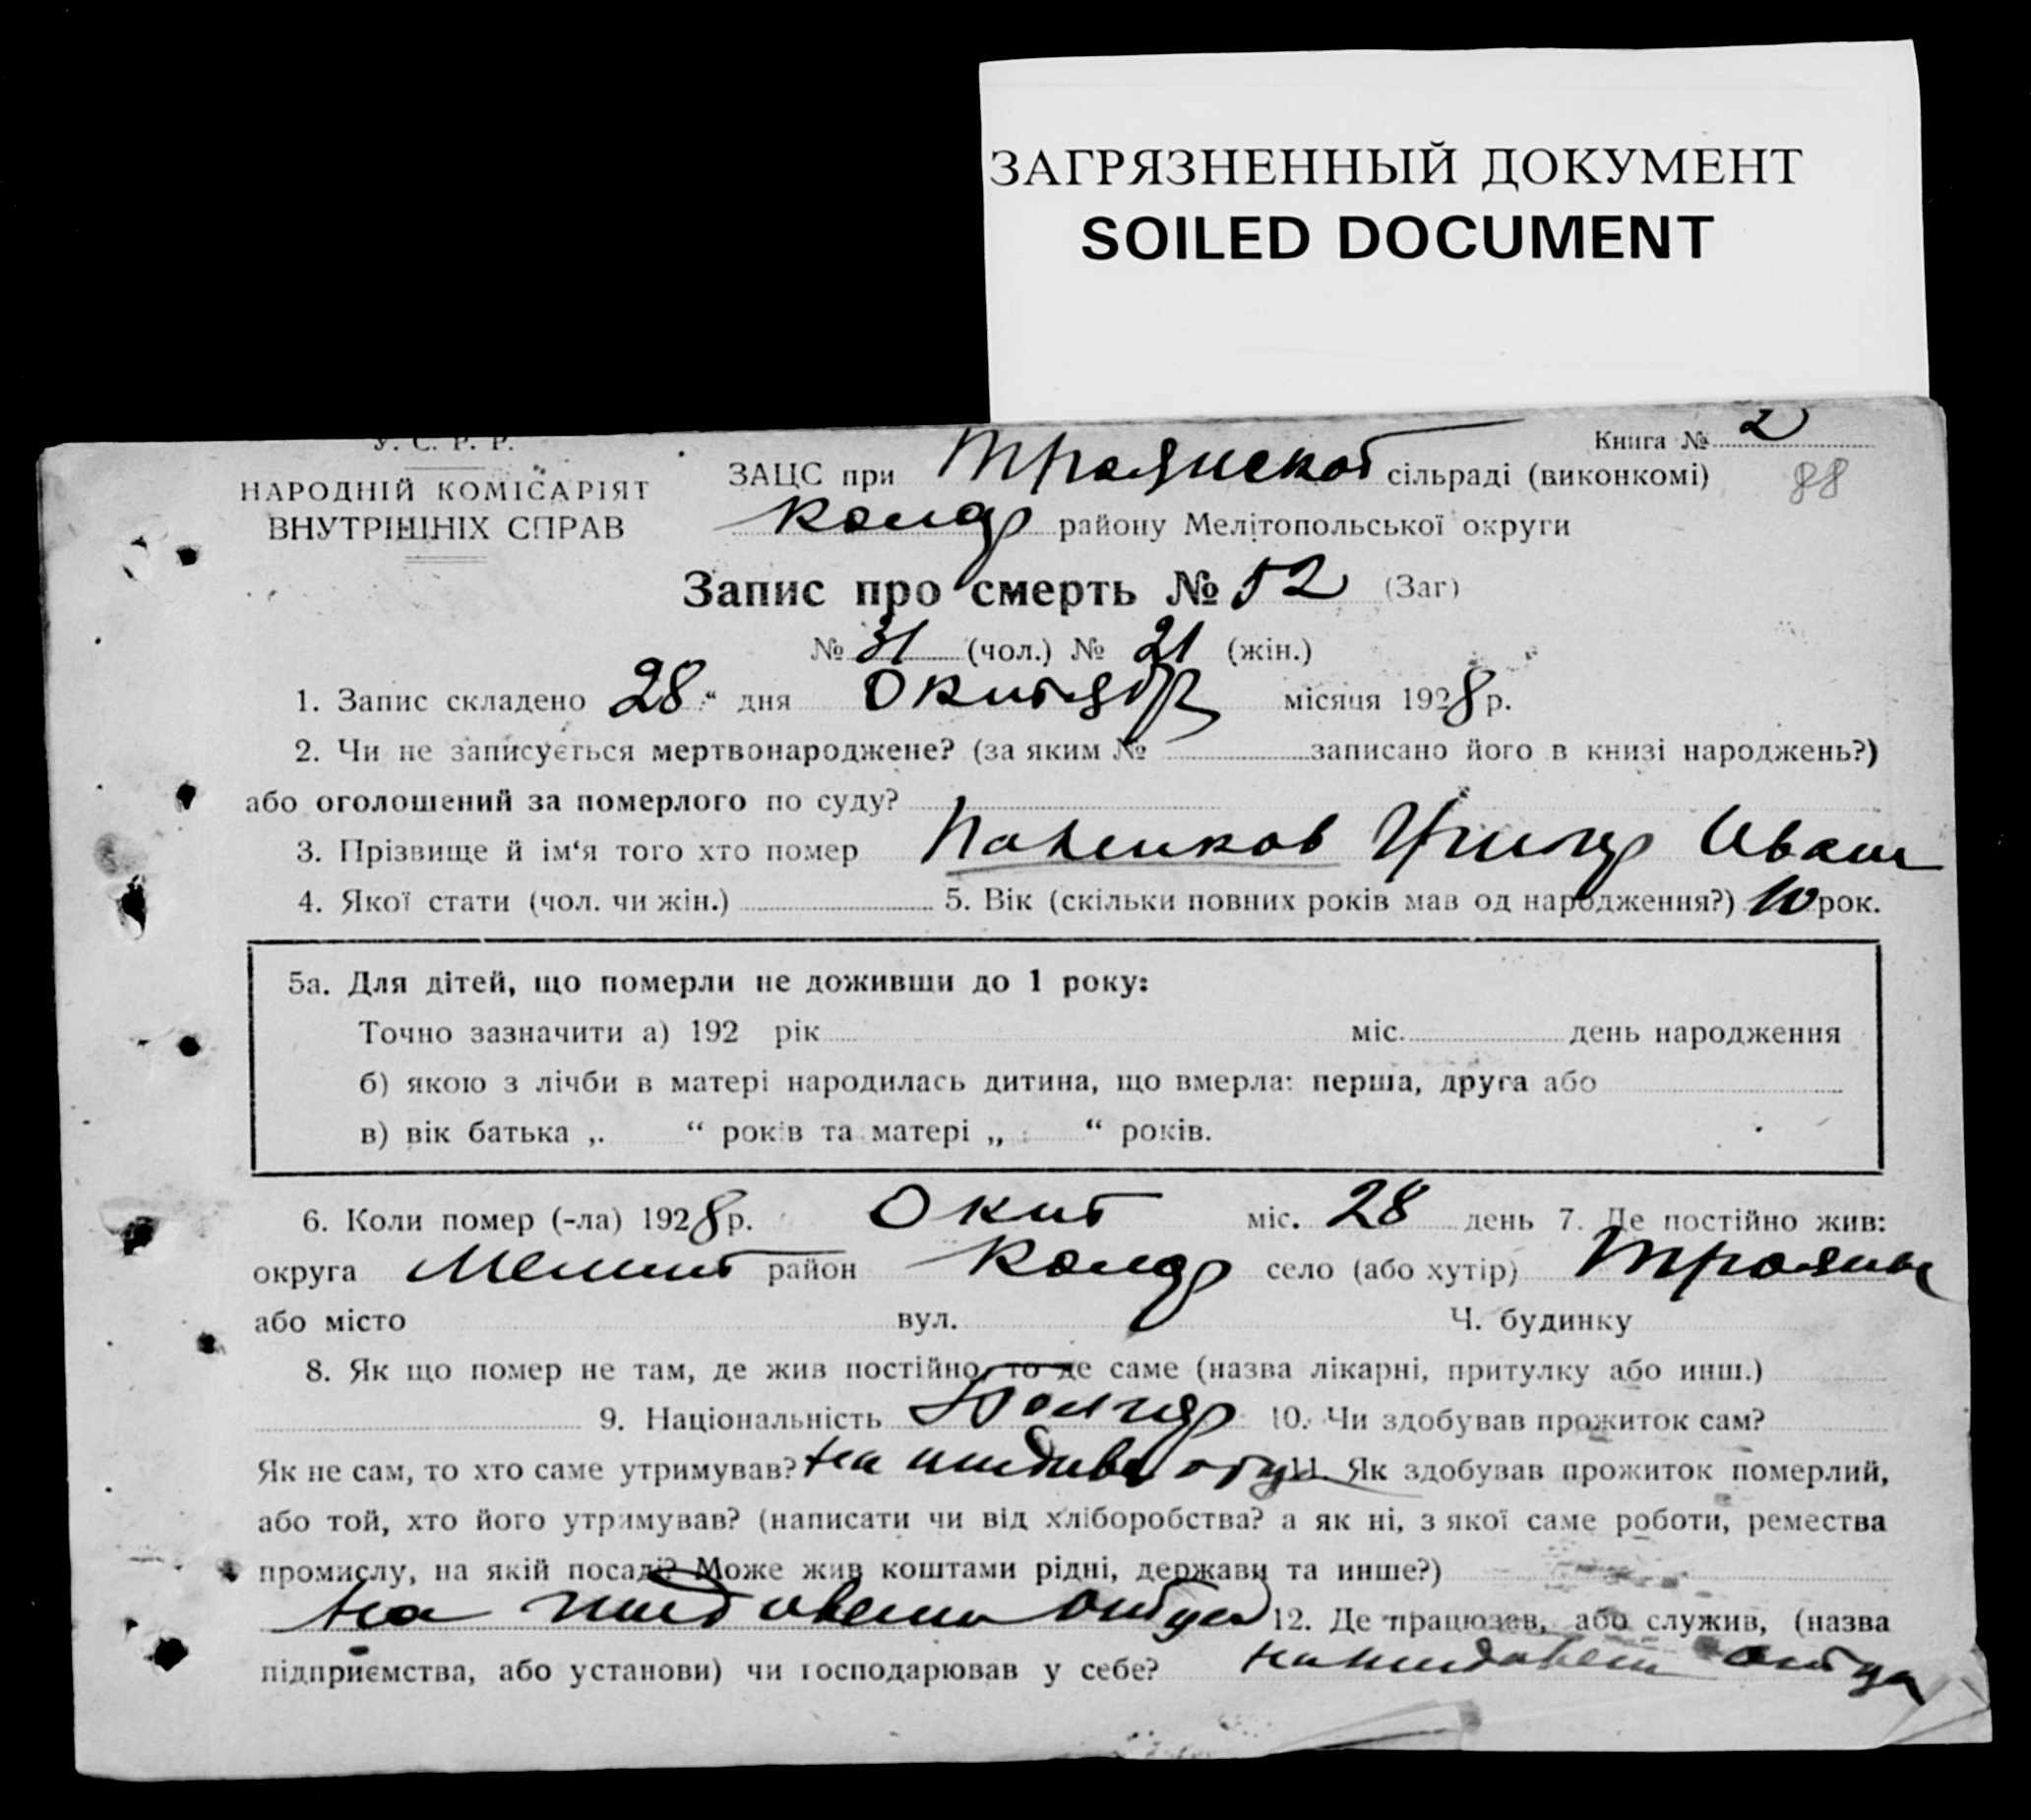 ЗАГРЯЗНЕННЫЙ ДОКУМЕНТ
SOILED DOCUMENT
Книга № 2
У. С. Р. Р.
88
НАРОДНІЙ КОМІСАРІЯТ
ВНУТРІШНІХ СПРАВ
ЗАЦС при Троянской сільраді (виконкомі)
району Мелітопольської округи
Запис про смерть № 52 (Заг)
№ 31 (чол.) № 21 (жін.)
1. Запис складено 28 “ дня Октябр місяця 1928 р.
2. Чи не записується мертвонароджене? (за яким № записано його в книзі народжень?)
або оголошений за померлого по суду?
3. Прізвище й ім‘я того хто помер Иван
4. Якої стати (чол. чи жін.) 5. Вік (скільки повних років мав од народження?) 10 рок.
5а. Для дітей, що померли не доживши до 1 року:
Точно зазначити а) 192 рік міс. день народження
б) якою з лічби в матері народилась дитина, що вмерла: перша, друга або
в) вік батька „ “ років та матері „ “ років.
6. Коли помер (-ла) 1928 р. Окт міс. 28 день 7. Де постійно жив:
округа Мелит район село (або хутір) Трояны
або місто вул. Ч. будинку
8. Як що помер не там, де жив постійно, то де саме (назва лікарні, притулку або инш.)
9. Національність Болгар 10. Чи здобував прожиток сам?
Як не сам, то хто саме утримував? На иждиве отца 11. Як здобував прожиток померлий,
або той, хто його утримував? (написати чи від хліборобства? а як ні, з якої саме роботи, ремества
промислу, на якій посаді? Може жив коштами рідні, держави та инше?)
На иждивении отца 12. Де працював, або служив, (назва
підприємства, або установи) чи господарював у себе? на иждивени отца